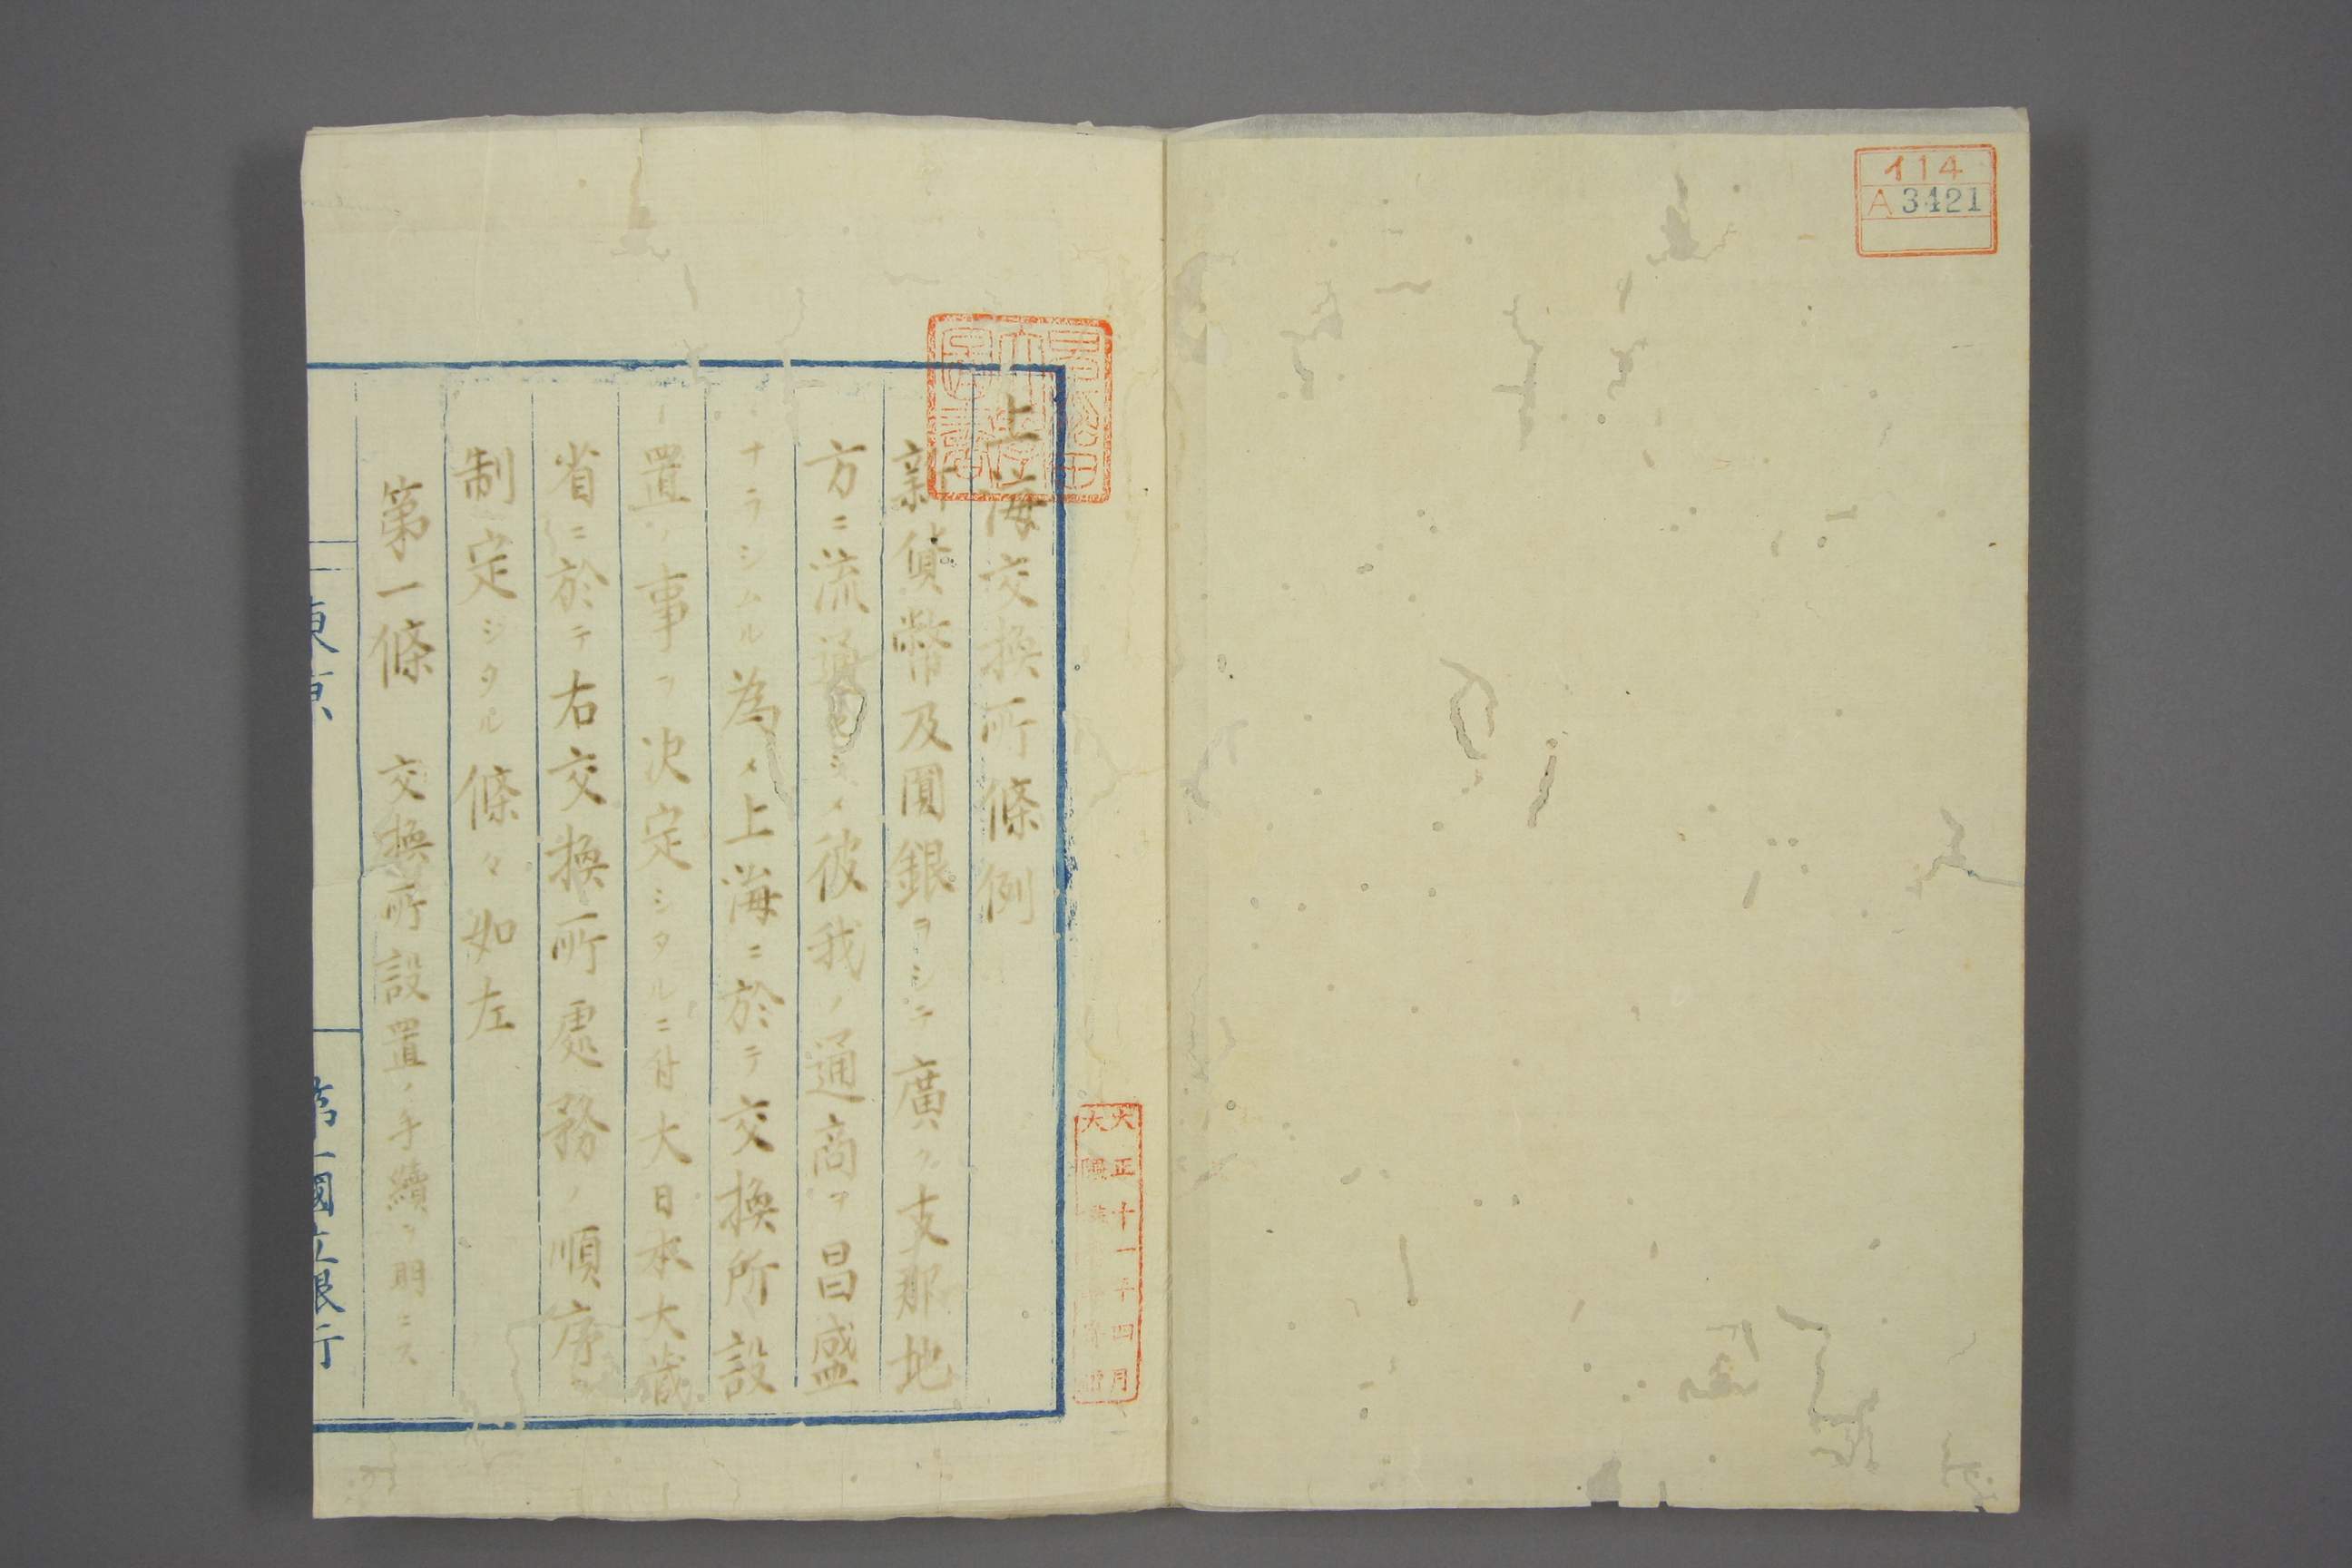 イ14
A3421
上海交換所條例
新貨幣及圓銀ヲシテ廣ク支那地
方ニ流通セシメ彼我ノ通商ヲ昌盛
ナラシムル為メ上海ニ於テ交換所設
置ノ事ヲ決定シタルニ付大日本大蔵
省ニ於テ右交換所處務ノ順序
制定シタル條々如左
第一條 交換所設置ノ手續ヲ明ニス
東京
第一國立銀行
大正十一年四月